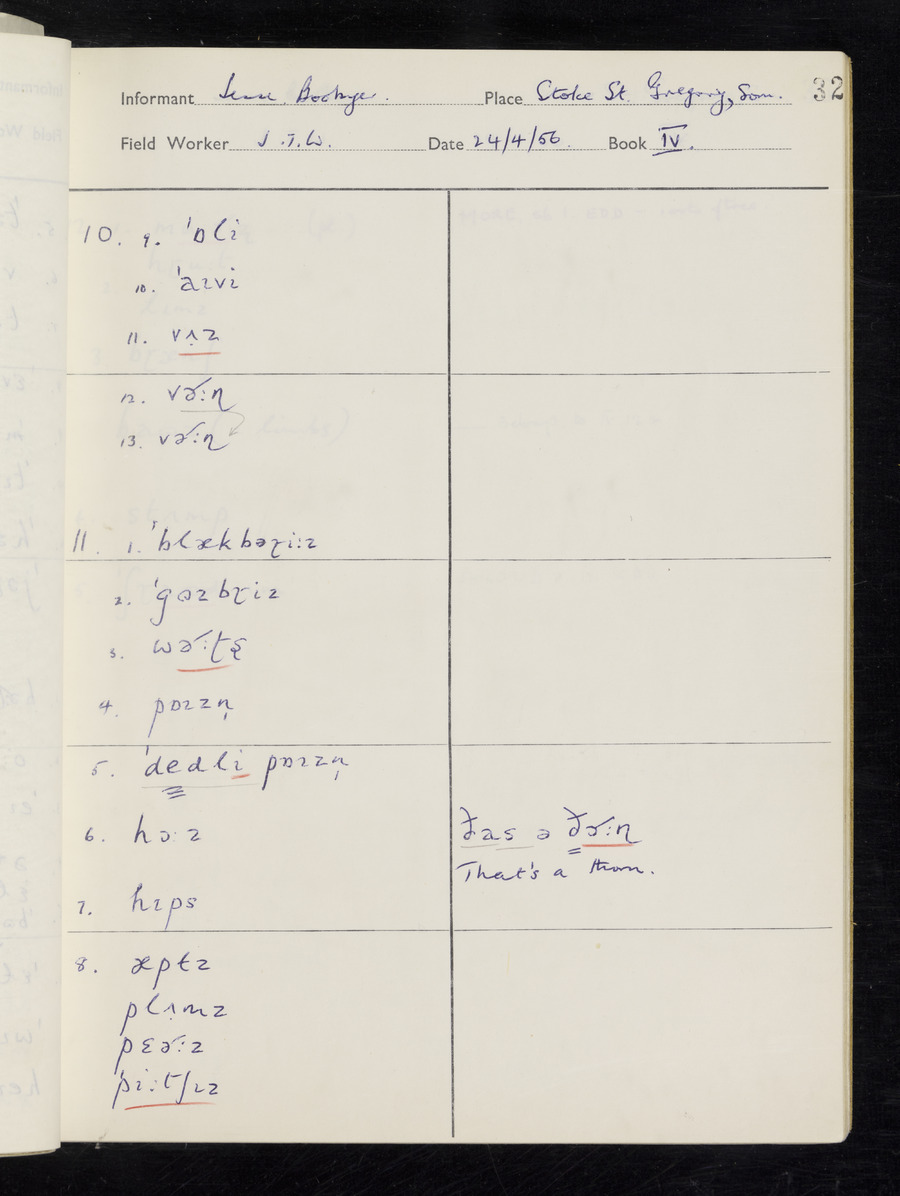 32
Informant
Place Stoke St. Gregory, Som.
Field Worker J.T.W. Date 24/4/56. Book IV.
10. 9. ˈɒli
10. ˈaɪvi
11. vʌz
12. vɚːɳ
13. vɚːɳ
11. 1. ˈblækbəɽiːz
2. ˈgɒzbɽiz
3. wɚːʈʂ
4. pɒɪzn̩
5. ˈdedli pɒɪzn̩
6. hɔːz ðas ə ð̣ɚːɳ
That's a thorn.
7. hɪps
8. æptz
plʌmz
pɛɚːz
piːtʃɪz